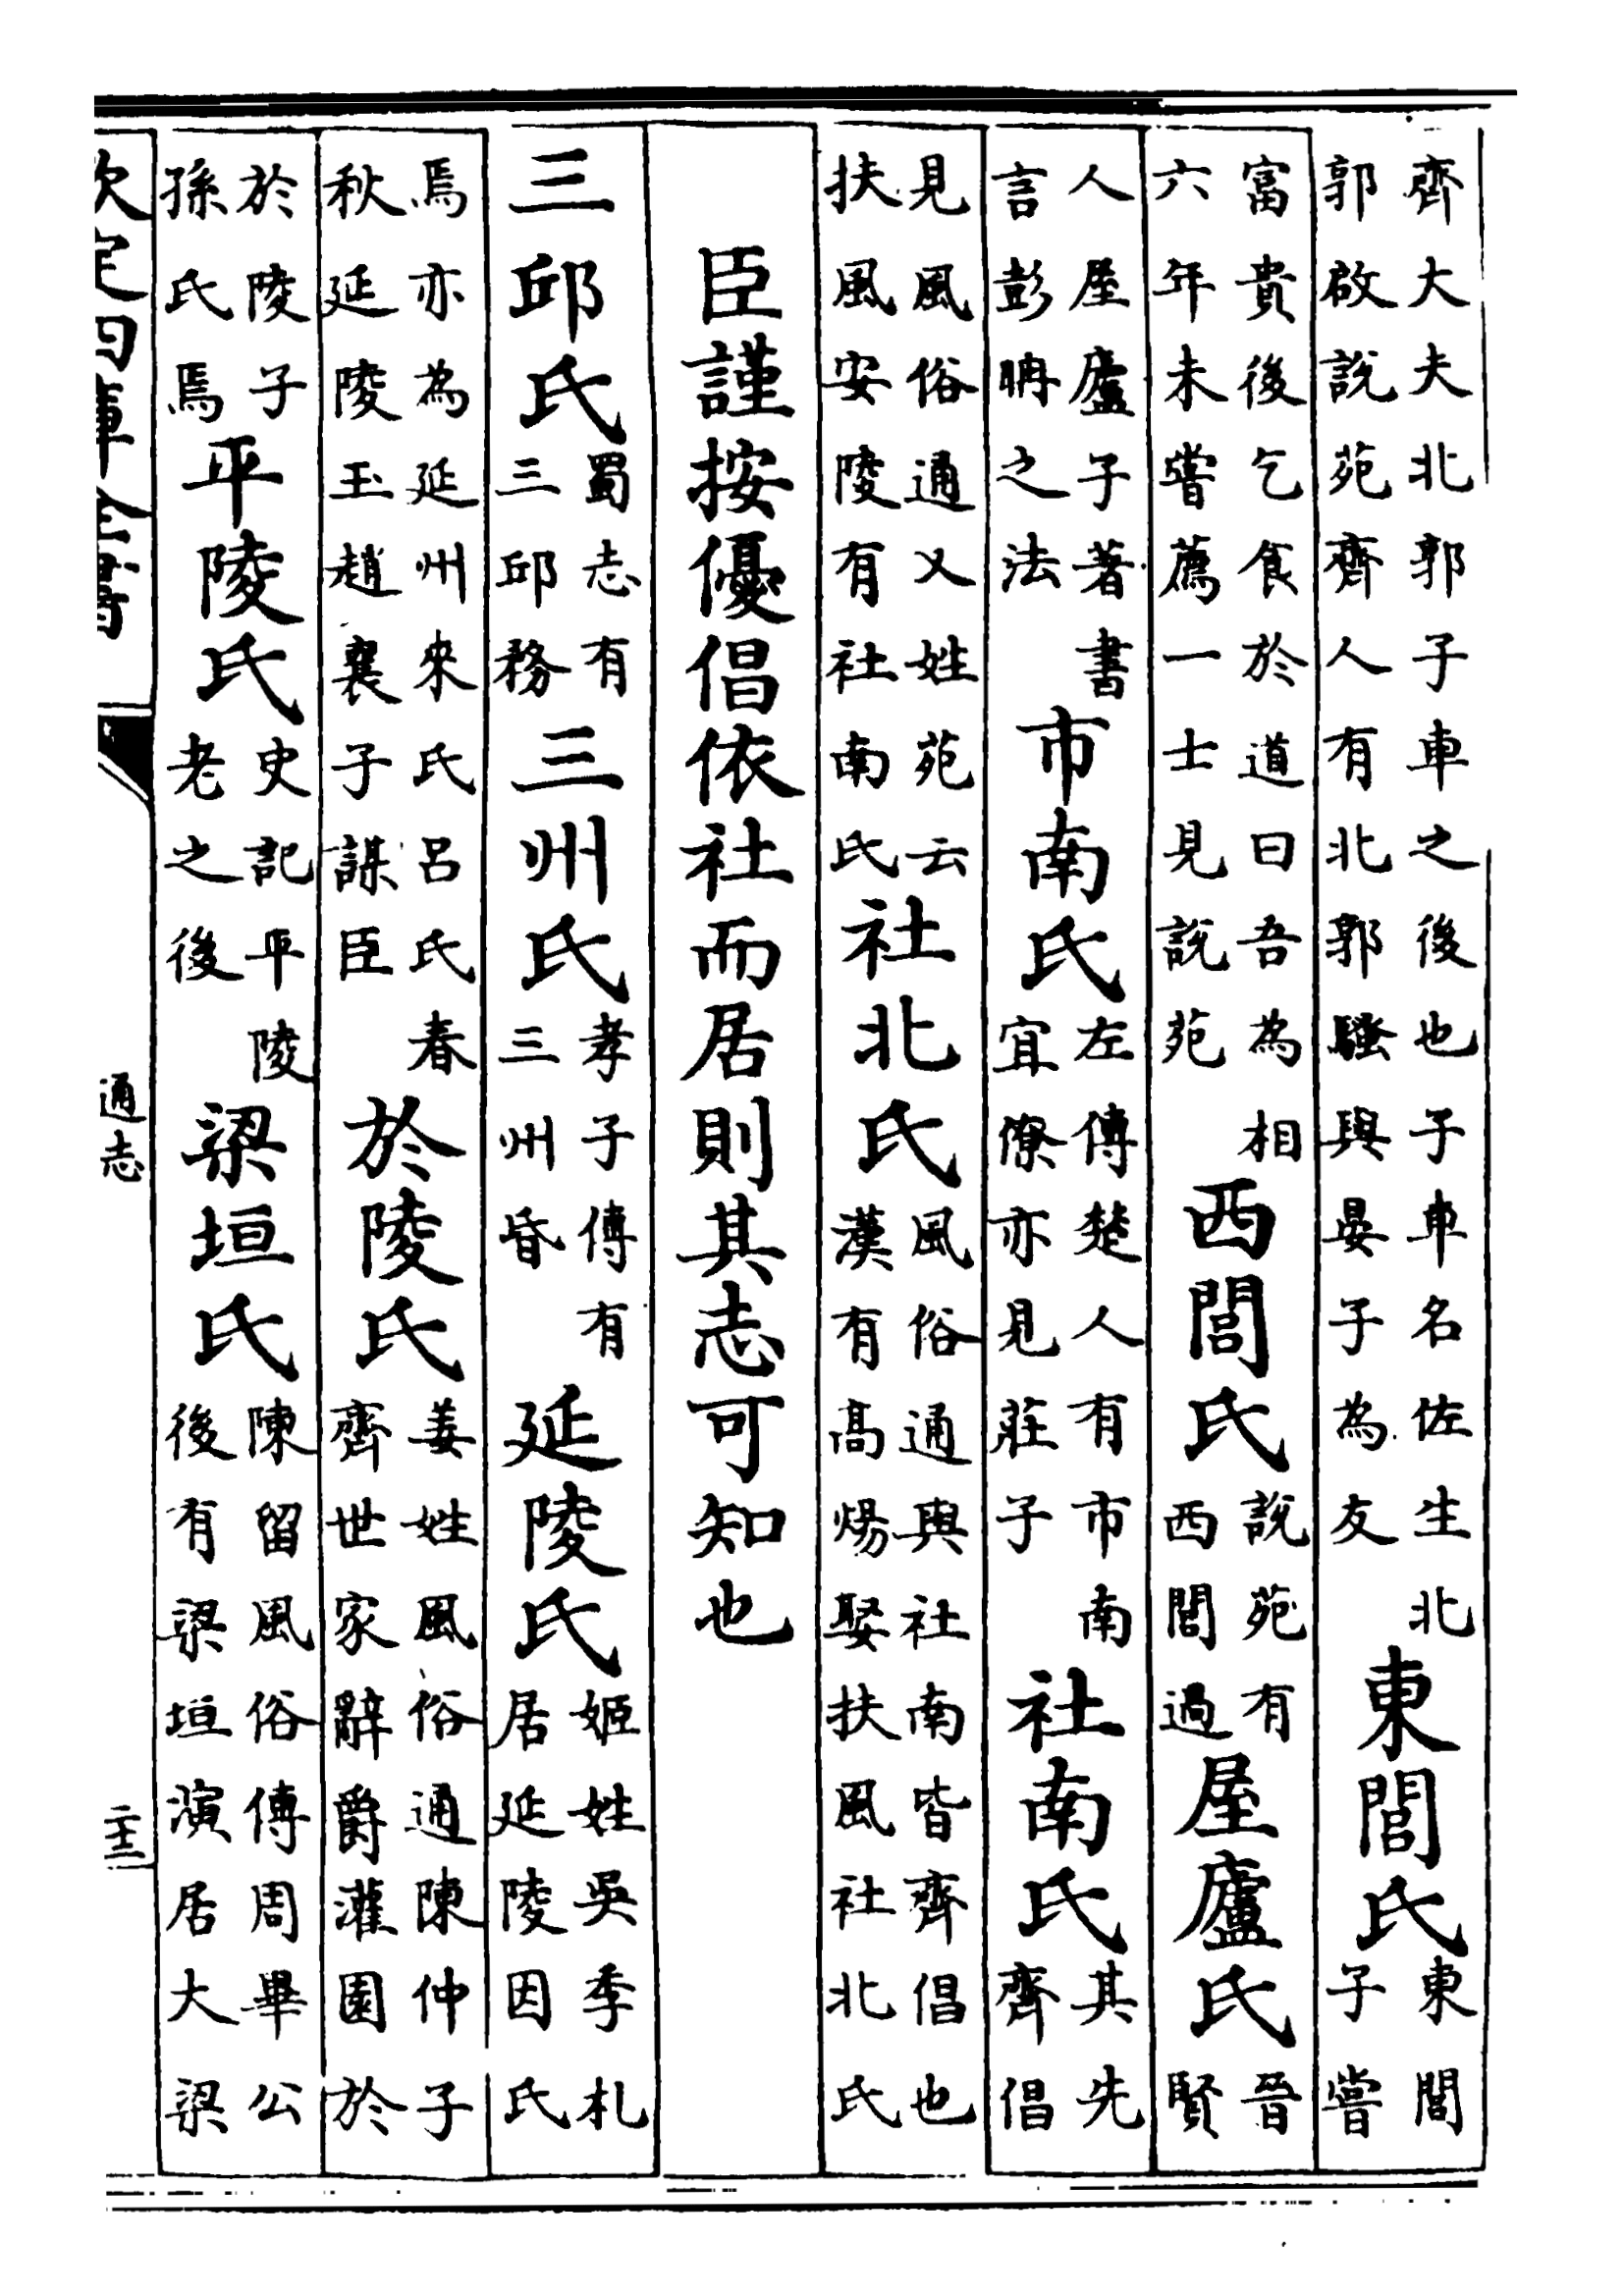 齊大夫北郭子車之後也子車名佐生北郭啟說苑齊人有北郭騷與晏子為友東閭氏東閭子嘗
富貴後乞食於道曰吾為相六年未嘗薦一士見說苑西閭氏說苑有西閭過屋廬氏晉賢
人屋廬子著書言彭聃之法市南氏左傳楚人有市南宜僚亦見莊子社南氏其先齊倡
見風俗通又姓苑云扶風安陵有社南氏社北氏風俗通與社南皆齊倡也漢有髙煬娶扶風社北氏
臣謹按優倡依社而居則其志可知也
三邱氏蜀志有三邱務三州氏孝子傳有三州昏延陵氏姬姓吳季札居延陵因氏
焉亦為延州來氏呂氏春秋延陵玉趙襄子謀臣於陵氏姜姓風俗通陳仲子齊世家辭爵灌園於
於陵子孫氏焉平陵氏史記平陵老之後梁垣氏陳留風俗傳周畢公後有梁垣演居大梁
欽定四庫全書
通志
二十三